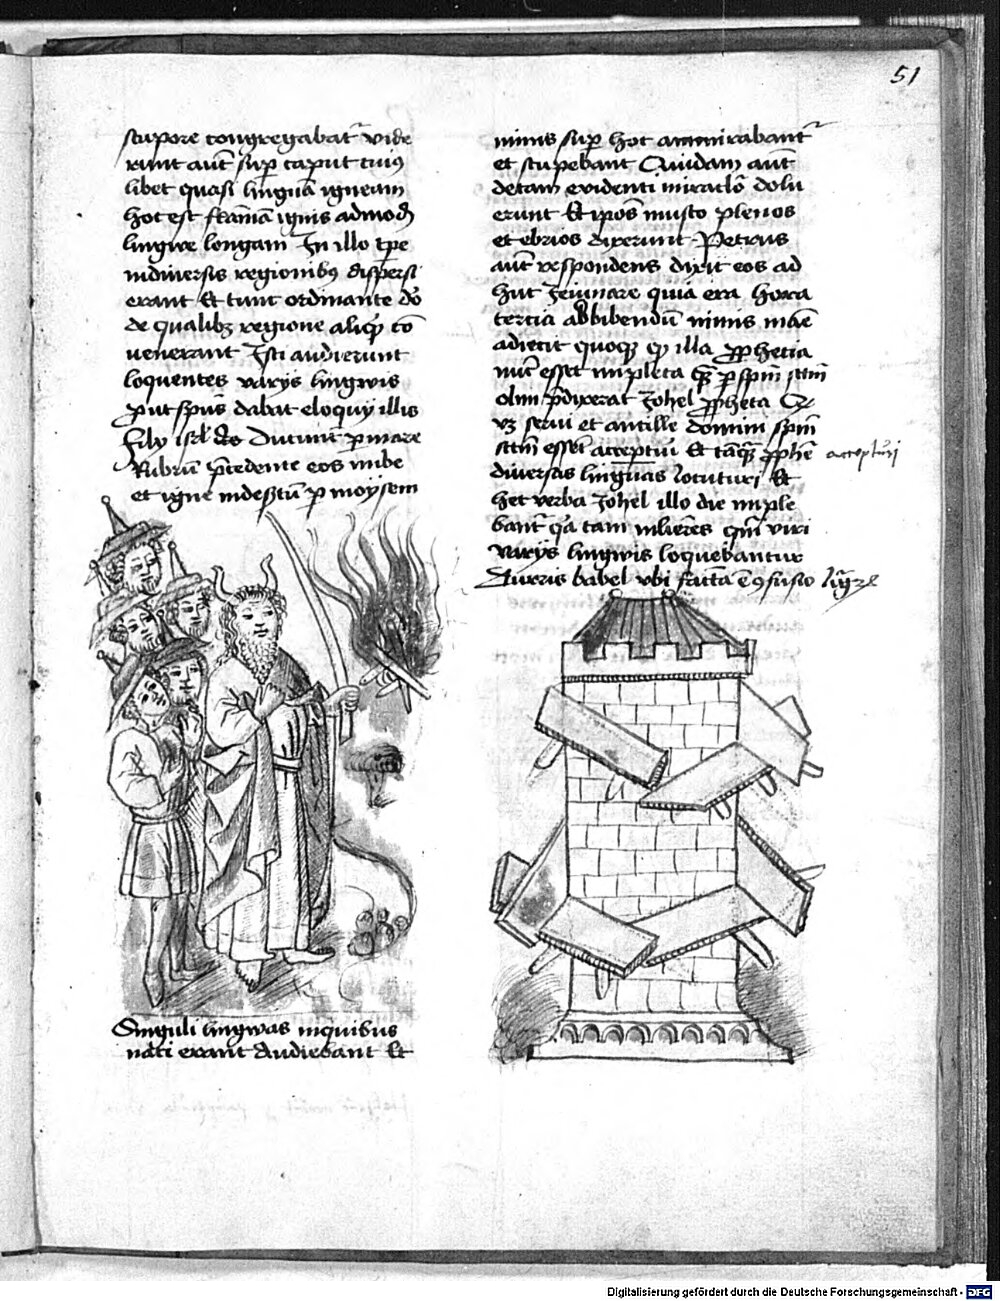 51
stupore congregabat᷑ vide
runt aut̄ suꝑ caput cuiꝰ
libet quasi linguā igneam
hoc est flāmā ignis admodū
lingwe longam In illo tp̄e
indiuersis regionibꝰ disꝑsi
erant Et tunc ordinante dō
de qualibꝫ regione aliqͥ cō
uenerant Isti audierunt
loquentes varijs lingwis
ꝓut spūs dabat eloquij illis
filij isrl̄ Ducunt᷑ ꝑ mare
Rubrū p̄cedente eos nube
et igne indesertū ꝑ moysem
Singuli lingwas inquibus
nati erant Audiebant Et
nimis suꝑ hoc ammirabant᷑
et stupebant Quidam aut̄
detam evidenti miraclō dolu
erunt Et ipos̄ musto plenos
et ebrios dixerunt Petrus
aut̄ respondens dixit eos ad
huc Jeiunare quia erat hora
tercia adbibendū nimis mane
adiecit quoqꝫ ꝙ illa ꝓphetia
nūc esset impleta ꝑ spm̄ sctm̄
olim p̄dixerat Johel ꝓpheta
vꝫ serui et ancille domini spm̄
sctm̄ essent accepturi Et tāqͣꝫ ꝓphē
accepturi
diuersas linguas locuturi Et
hec verba Johel illo die imple
bant᷑ qͣ tam mlieres qm̄ viri
varijs lingwis loquebantur
Turris babel vbi facta ē ꝯfusio